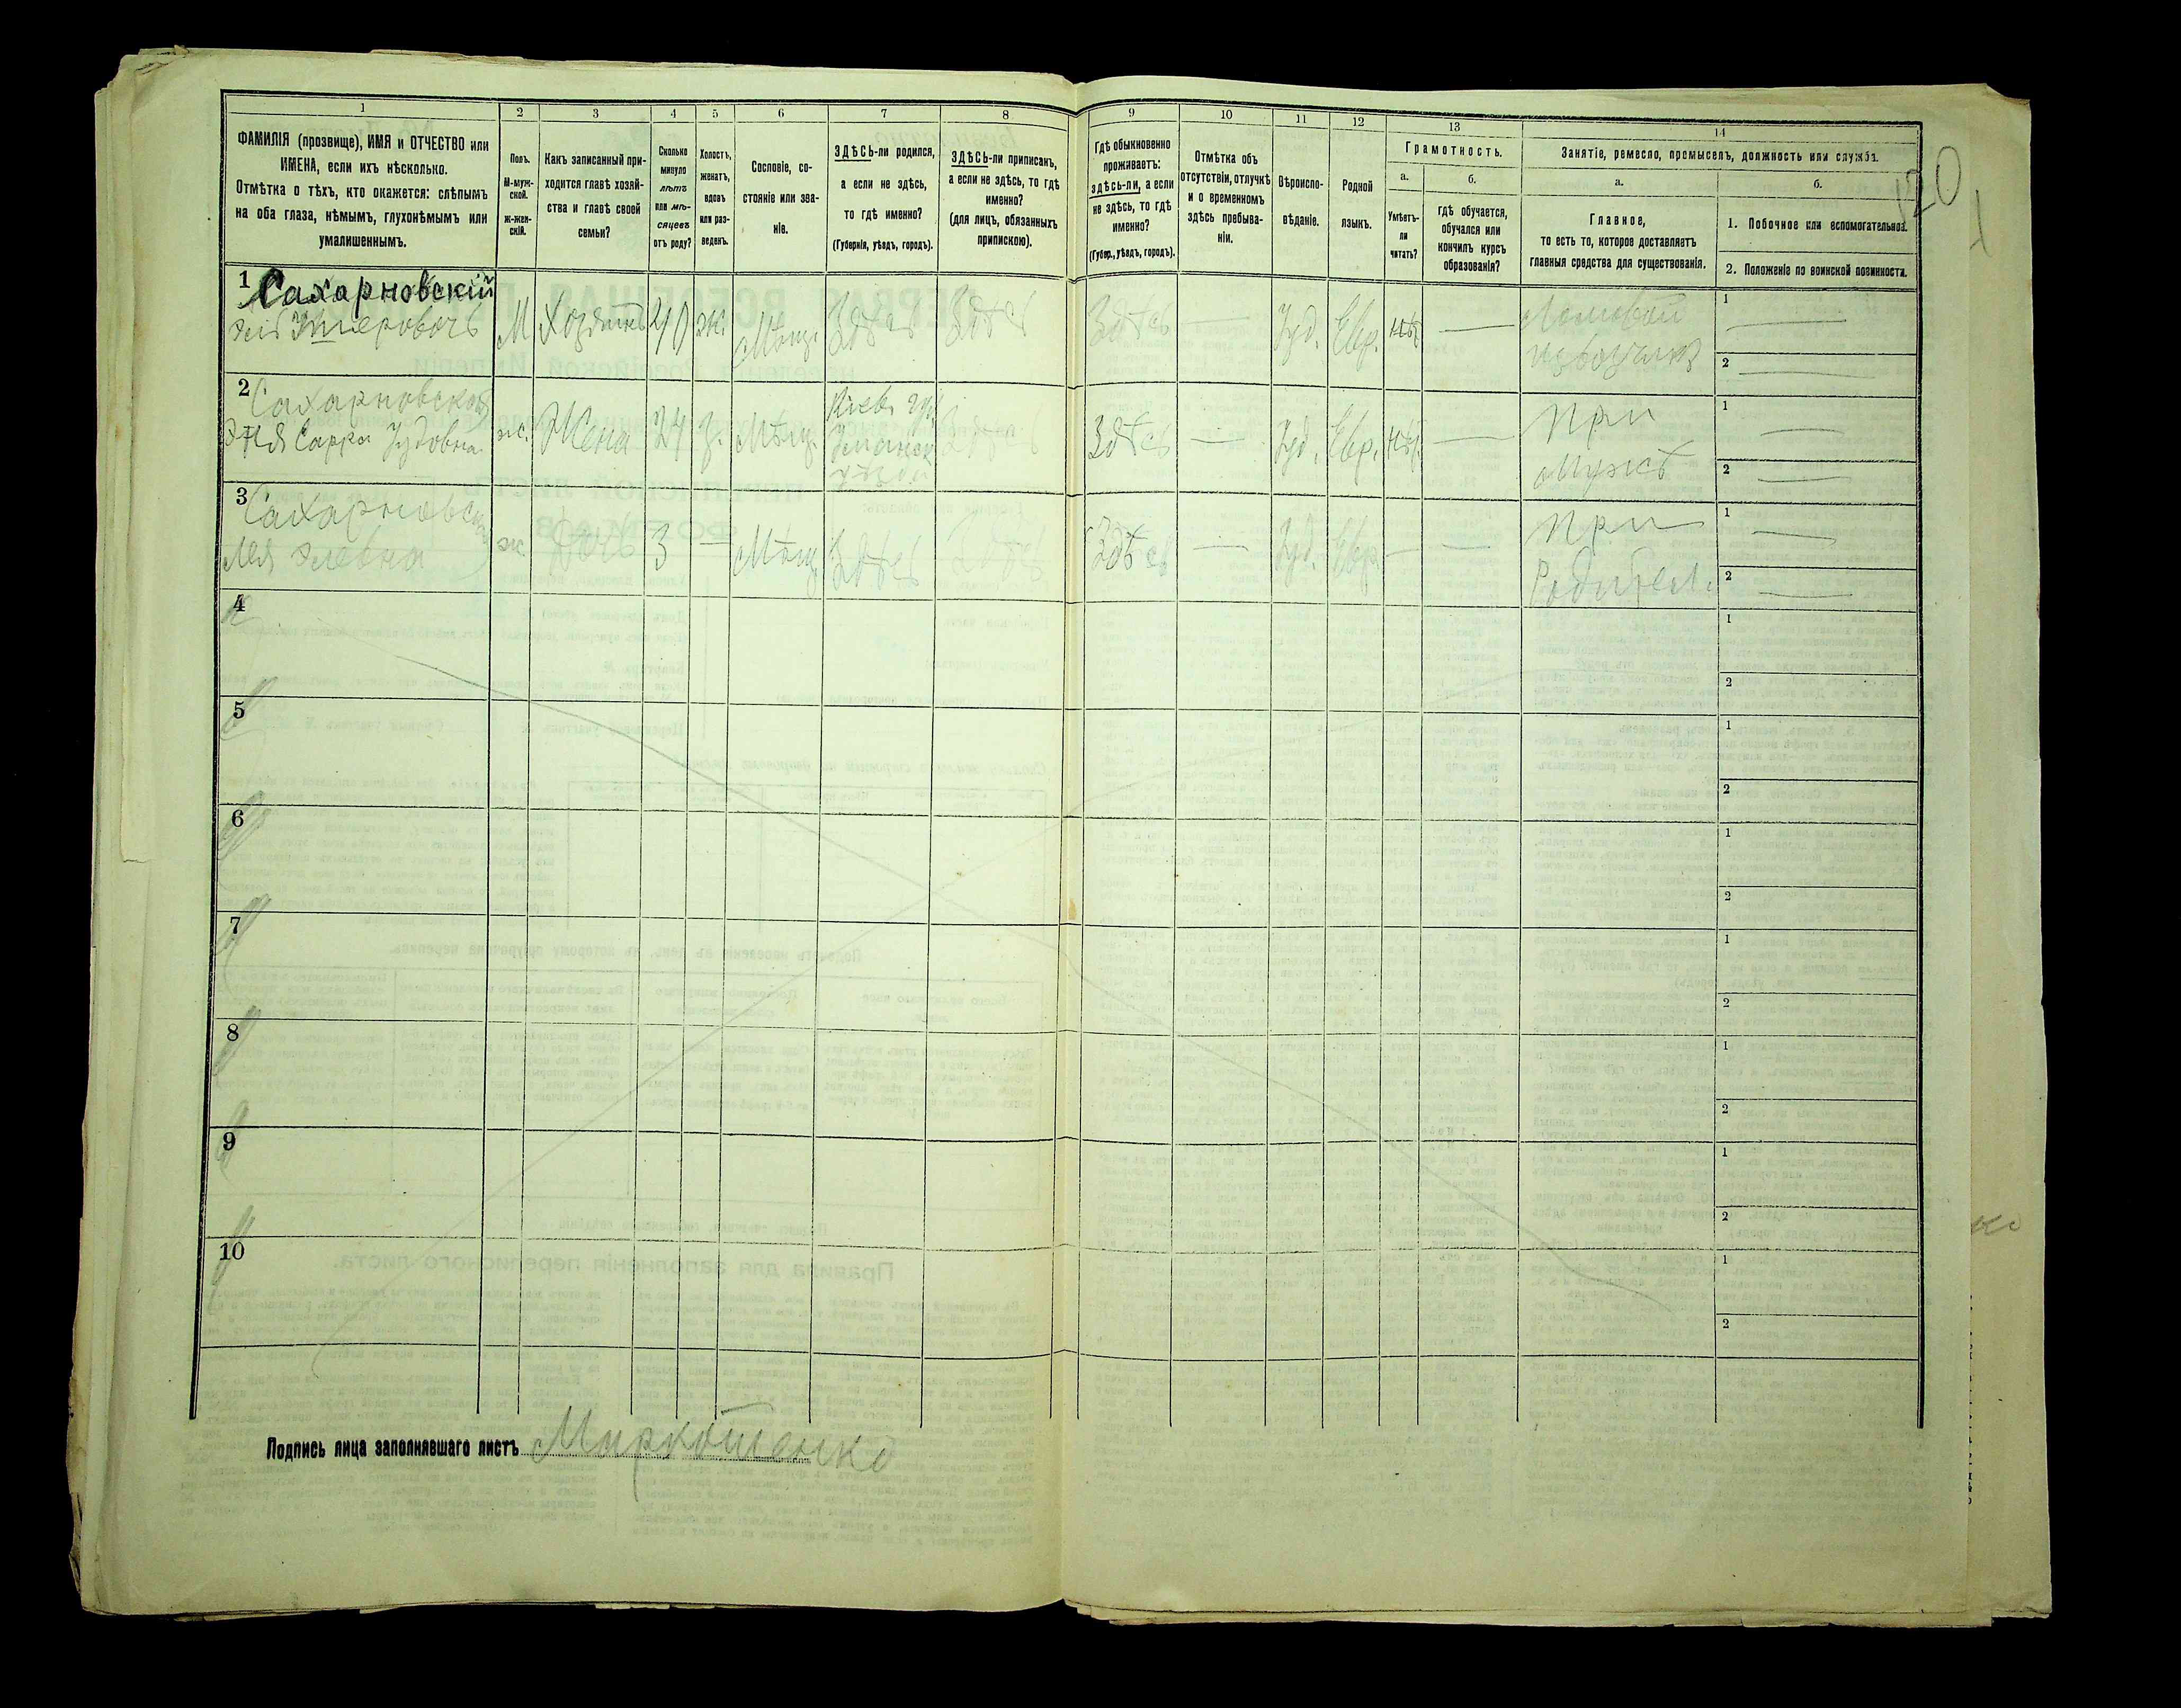 1 2 3 4 5 6 7 8 9 10 11 12 13 14
ФАМИЛІЯ (прозвище), ИМЯ и ОТЧЕСТВО или ИМЕНА, если ихъ нѣсколько.
Отмѣтка о тѣхъ, кто окажется: слѣпымъ на оба глаза, нѣмымъ, глухонѣмымъ или умалишеннымъ.
Полъ.
М-мужской.
ж-женскій.
Какъ записанный приходится главѣ хозяйства и главѣ своей семьи?
Сколько минуло лѣтъ или мѣсяцевъ отъ роду?
Холостъ, женатъ, вдовъ или разведенъ.
Сословіе, состояніе или званіе.
ЗДѢСЬ-ли родился, а если не здѣсь, то гдѣ именно?
(Губернія, уѣздъ, городъ).
ЗДѢСЬ-ли приписанъ, а если не здѣсь, то гдѣ именно?
(для лицъ, обязанныхъ припискою).
Гдѣ обыкновенно проживаетъ: здѣсь-ли, а если не здѣсь, то гдѣ именно?
(Губер., уѣздъ, городъ).
Отмѣтка объ отсутствіи, отлучкѣ и о временномъ здѣсь пребываніи.
Вѣроисповѣданіе.
Родной языкъ.
Грамотность.
а.
Умѣетъ-ли читать?
б.
гдѣ обучается, обучался или кончилъ курсъ образованія?
Занятіе, ремесло, промыселъ, должность или служба.
а.
Главное,
то есть то, которое доставляетъ главныя средства для существованія.
б.
1. Побочное или вспомогательное.
2. Положеніе по воинской повинности.
120
1 Сахарновскій
Умеровичъ М Хозяинъ 40 ж. Мѣщ. Здѣсь Здѣсь Здѣсь — Іуд. Евр. нѣт — Ломовой извозчик
1 —
2 —
2 Сахарновская
Сарра Іудовна ж. Жена 24 З. Мѣщ. Кіев. губ. Уманск уѣзд Здѣсь Здѣсь — Іуд. Евр. нѣт — При мужѣ
1 —
2 —
3 Сахарновская
Лея ж. Дочь 3 — Мѣщ. Здѣсь Здѣсь Здѣсь — Іуд. Евр. — — При Родител.
1 —
2 —
4 1 2
5 1 2
6 1 2
7 1 2
8 1 2
9 1 2
10 1 2
Подпись лица заполнявшаго листъ